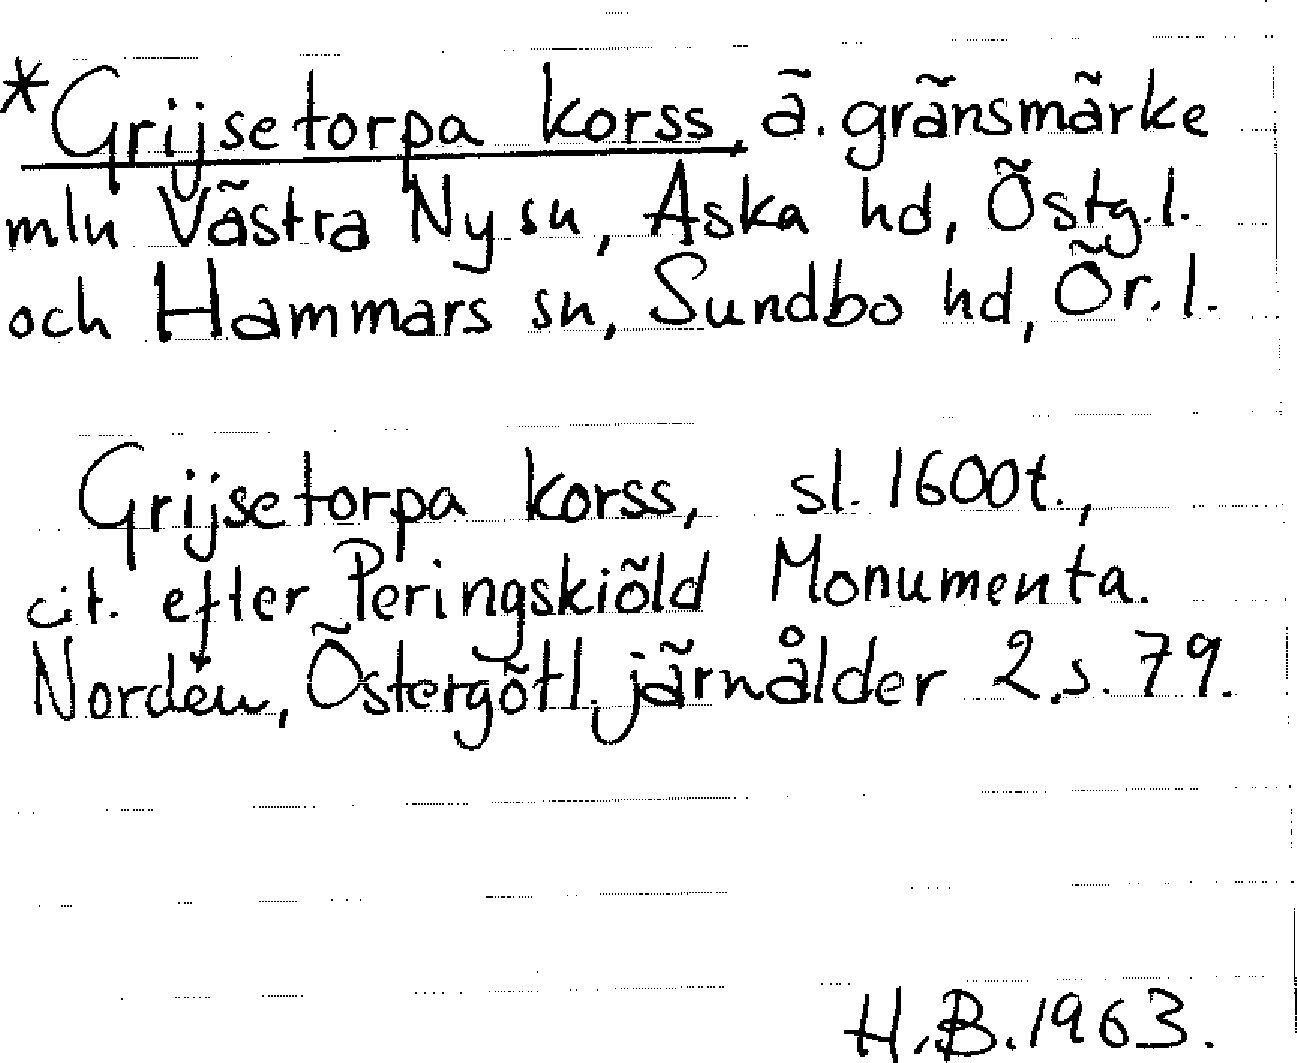 *Grijsetorpa korss, ä. gränsmärke
mln Västra Ny sn, Aska hd, Östg.l.
och Hammars sn, Sundbo hd, Ör.l.
Grijsetorpa korss, sl. 1600t.,
cit. efter Peringskiöld Monumenta.
Nordén, Östergötl. järnålder 2.s.79.
H.B.1963.